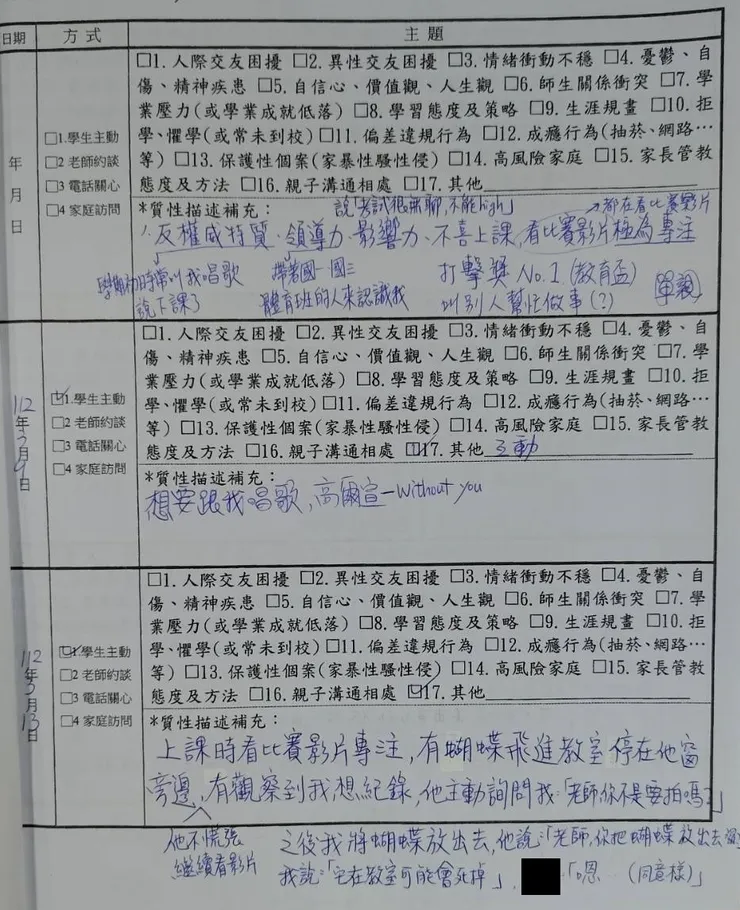 日期 方式 主題
□1.人際交友困擾 □2.異性交友困擾 □3.情緒衝動不穩 □4.憂鬱、自
傷、精神疾患 □5.自信心、價值觀、人生觀 □6.師生關係衝突 □7.學
業壓力(或學業成就低落) □8.學習態度及策略 □9.生涯規畫 □10.拒
學、懼學(或常未到校) □11.偏差違規行為 □12.成癮行為(抽菸、網路…
等) □13.保護性個案(家暴性騷性侵) □14.高風險家庭 □15.家長管教
態度及方法 □16.親子溝通相處 □17.其他
年月日
□1.學生主動
□2 老師約談
□3 電話關心
□4 家庭訪問
*質性描述補充：
說「考試很無聊,不能high」 →都在看比賽影片
1.反權威特質、領導力、影響力、不喜上課,看比賽影片極為專注
學期初時常叫我唱歌 帶著國一國三 打擊獎 No.1(教育盃) 單親
說下課了 體育班的人來認識我 叫別人幫忙做事(?)
□1.人際交友困擾 □2.異性交友困擾 □3.情緒衝動不穩 □4.憂鬱、自
傷、精神疾患 □5.自信心、價值觀、人生觀 □6.師生關係衝突 □7.學
業壓力(或學業成就低落) □8.學習態度及策略 □9.生涯規畫 □10.拒
學、懼學(或常未到校) □11.偏差違規行為 □12.成癮行為(抽菸、網路…
等) □13.保護性個案(家暴性騷性侵) □14.高風險家庭 □15.家長管教
態度及方法 □16.親子溝通相處 ☑17.其他 互動
112年 月 日
☑1.學生主動
□2 老師約談
□3 電話關心
□4 家庭訪問
*質性描述補充：
想要跟我唱歌,高爾宣-Without you
□1.人際交友困擾 □2.異性交友困擾 □3.情緒衝動不穩 □4.憂鬱、自
傷、精神疾患 □5.自信心、價值觀、人生觀 □6.師生關係衝突 □7.學
業壓力(或學業成就低落) □8.學習態度及策略 □9.生涯規畫 □10.拒
學、懼學(或常未到校) □11.偏差違規行為 □12.成癮行為(抽菸、網路…
等) □13.保護性個案(家暴性騷性侵) □14.高風險家庭 □15.家長管教
態度及方法 □16.親子溝通相處 ☑17.其他
112年 月13日
☑1.學生主動
□2 老師約談
□3 電話關心
□4 家庭訪問
*質性描述補充：
上課時看比賽影片專注,有蝴蝶飛進教室停在他窗
旁邊,有觀察到我想紀錄,他主動詢問我:「老師,你不是要拍嗎?」
他不慌張 之後我將蝴蝶放出去,他說:「老師,你把蝴蝶放出去
繼續看影片 我說:「它在教室可能會死掉」, 「嗯 (同意樣)」